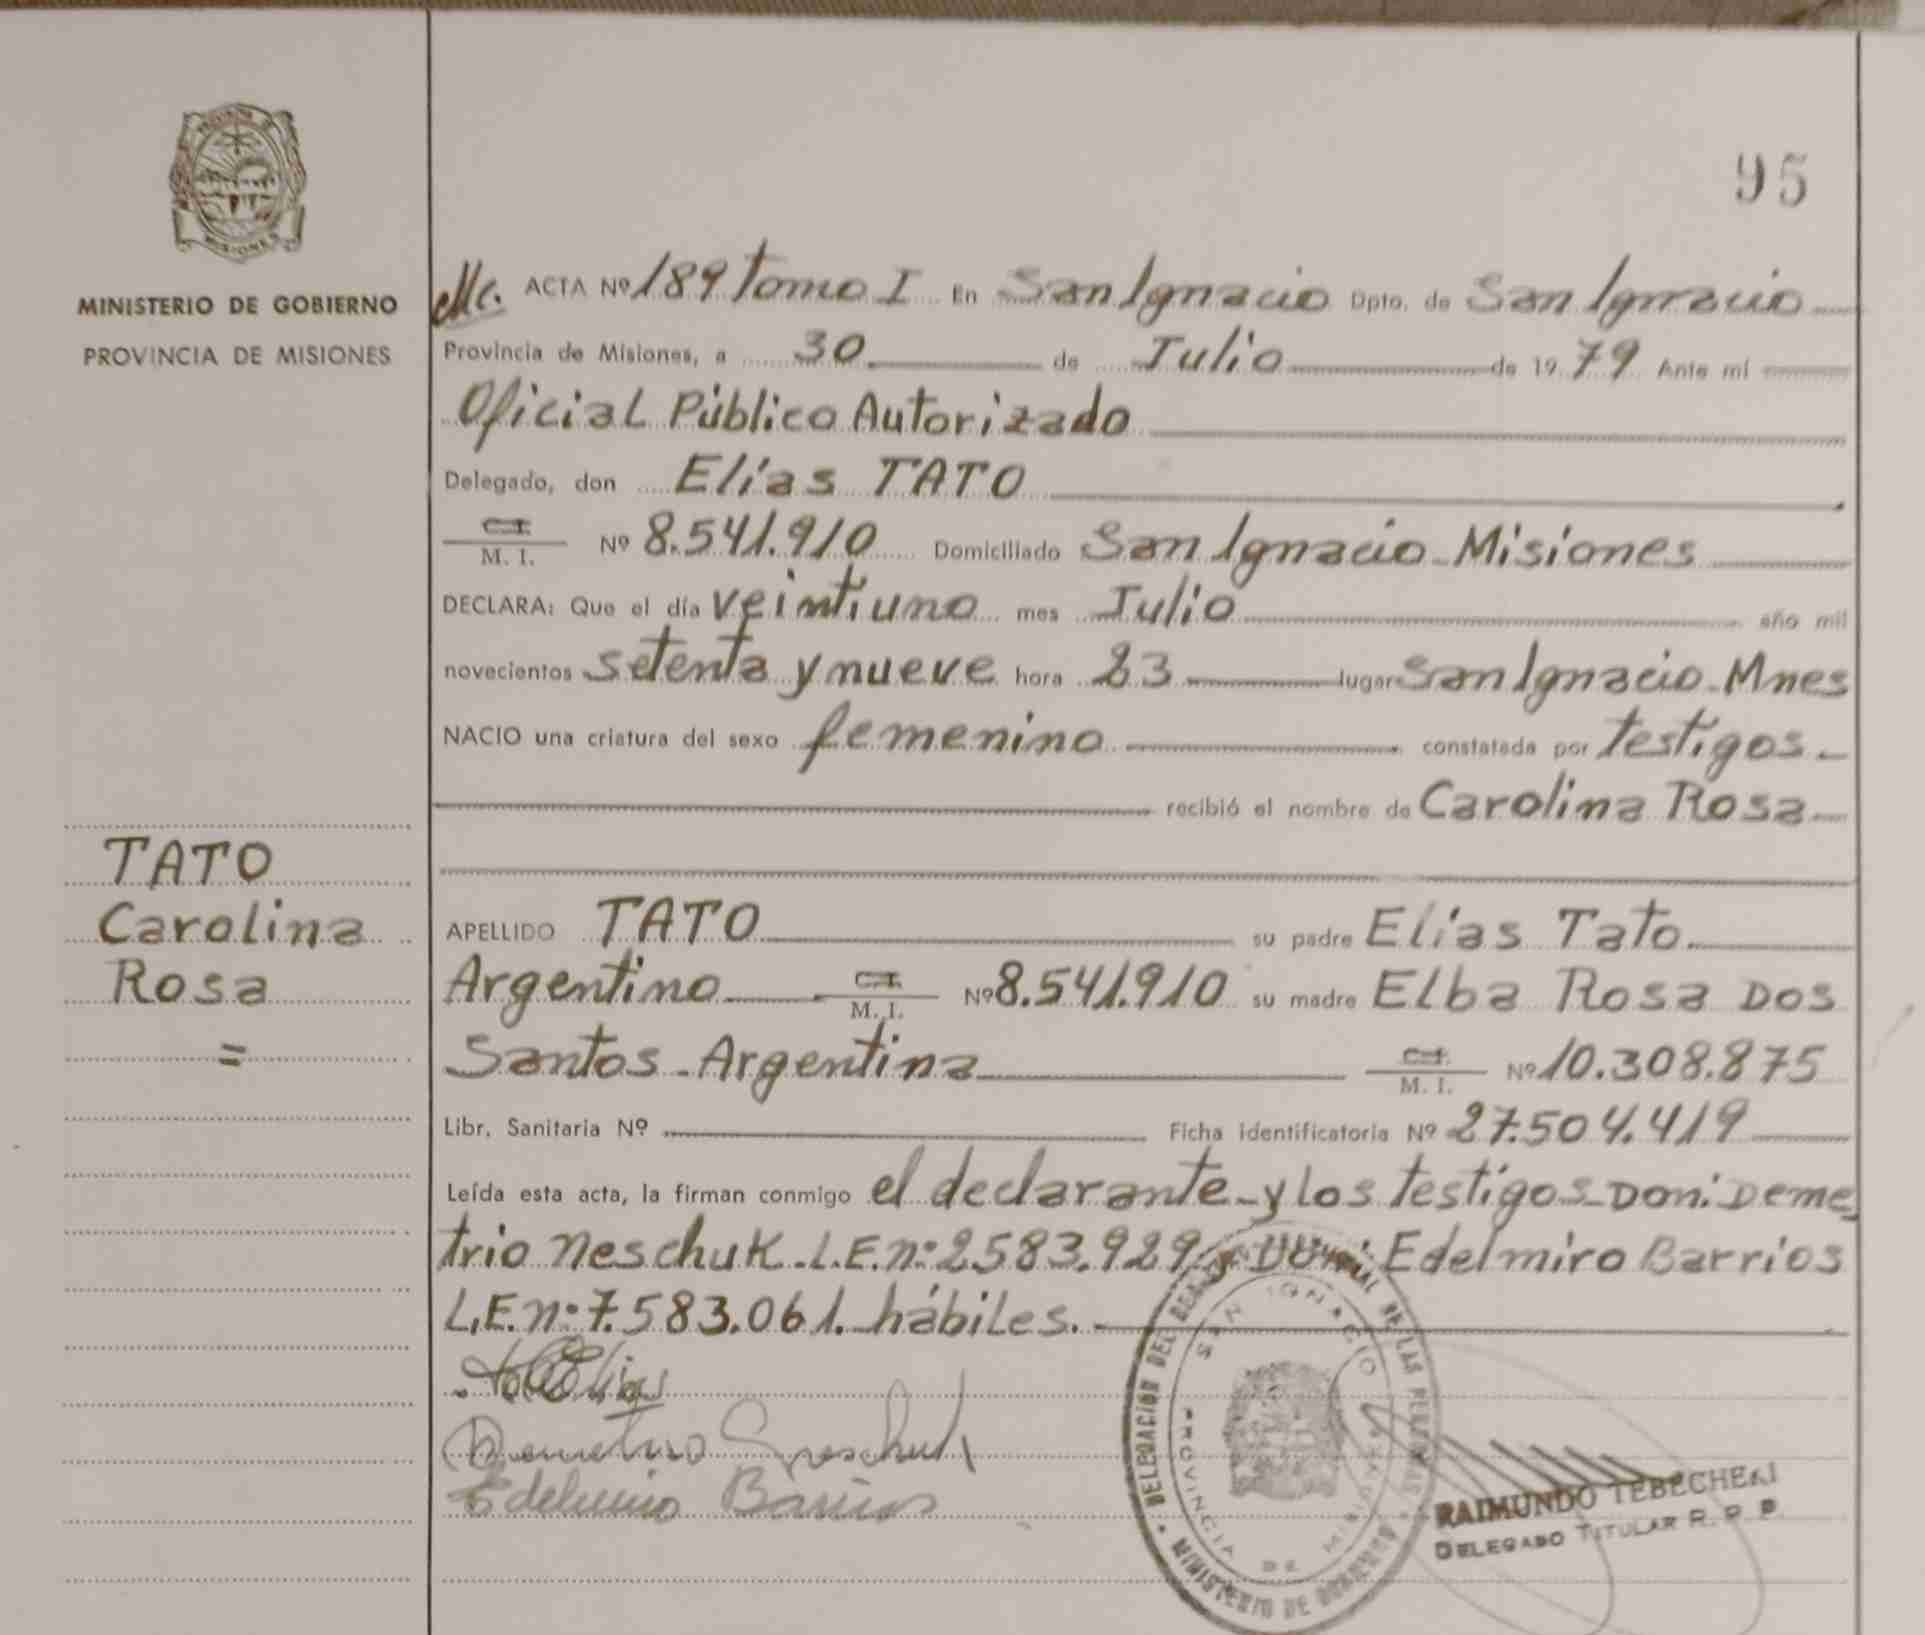 PROVINCIA DE
MISIONES
MINISTERIO DE GOBIERNO
PROVINCIA DE MISIONES
TATO
Carolina
Rosa
=
95
ACTA Nº 189 Tomo I En San Ignacio Dpto. de San Ignacio
Provincia de Misiones, a 30 de Julio de 1979 Ante mí
Oficial Público Autorizado
Delegado, don Elías TATO
C.I.
M. I. Nº 8.541.910 Domiciliado San Ignacio - Misiones
DECLARA: Que el día veintiuno mes Julio año mil
novecientos setenta y nueve hora 23 lugar San Ignacio - Mnes
NACIO una criatura del sexo femenino constatada por testigos -
recibió el nombre de Carolina Rosa
APELLIDO TATO su padre Elías Tato.
Argentino C.I. M. I. Nº 8.541.910 su madre Elba Rosa Dos
Santos - Argentina C.I. M. I. Nº 10.308.875
Libr. Sanitaria Nº Ficha identificatoria Nº 27.504.419
Leída esta acta, la firman conmigo el declarante - y los testigos - Don: Deme
trio Neschuk - L.E. nº: 2.583.929 - Don: Edelmiro Barrios
L.E. nº: 7.583.061. hábiles. -
Elias
Demetrio Neschuk
Edelmiro Barrios
DELEGACIÓN DEL REGISTRO PROVINCIAL DE LAS PERSONAS
SAN IGNACIO
PROVINCIA DE MISIONES
MINISTERIO DE GOBIERNO
RAIMUNDO TEBECHERI
DELEGADO TITULAR R. P. P.